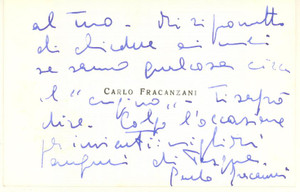 al tuo – Mi riprometto
di chiedere ai miei
se sanno qualcosa circa
CARLO FRACANZANI
il "cugino" – Ti saprò
dire. Colgo l'occasione
per inviarti i migliori
auguri di Pasqua.
Fracanzani